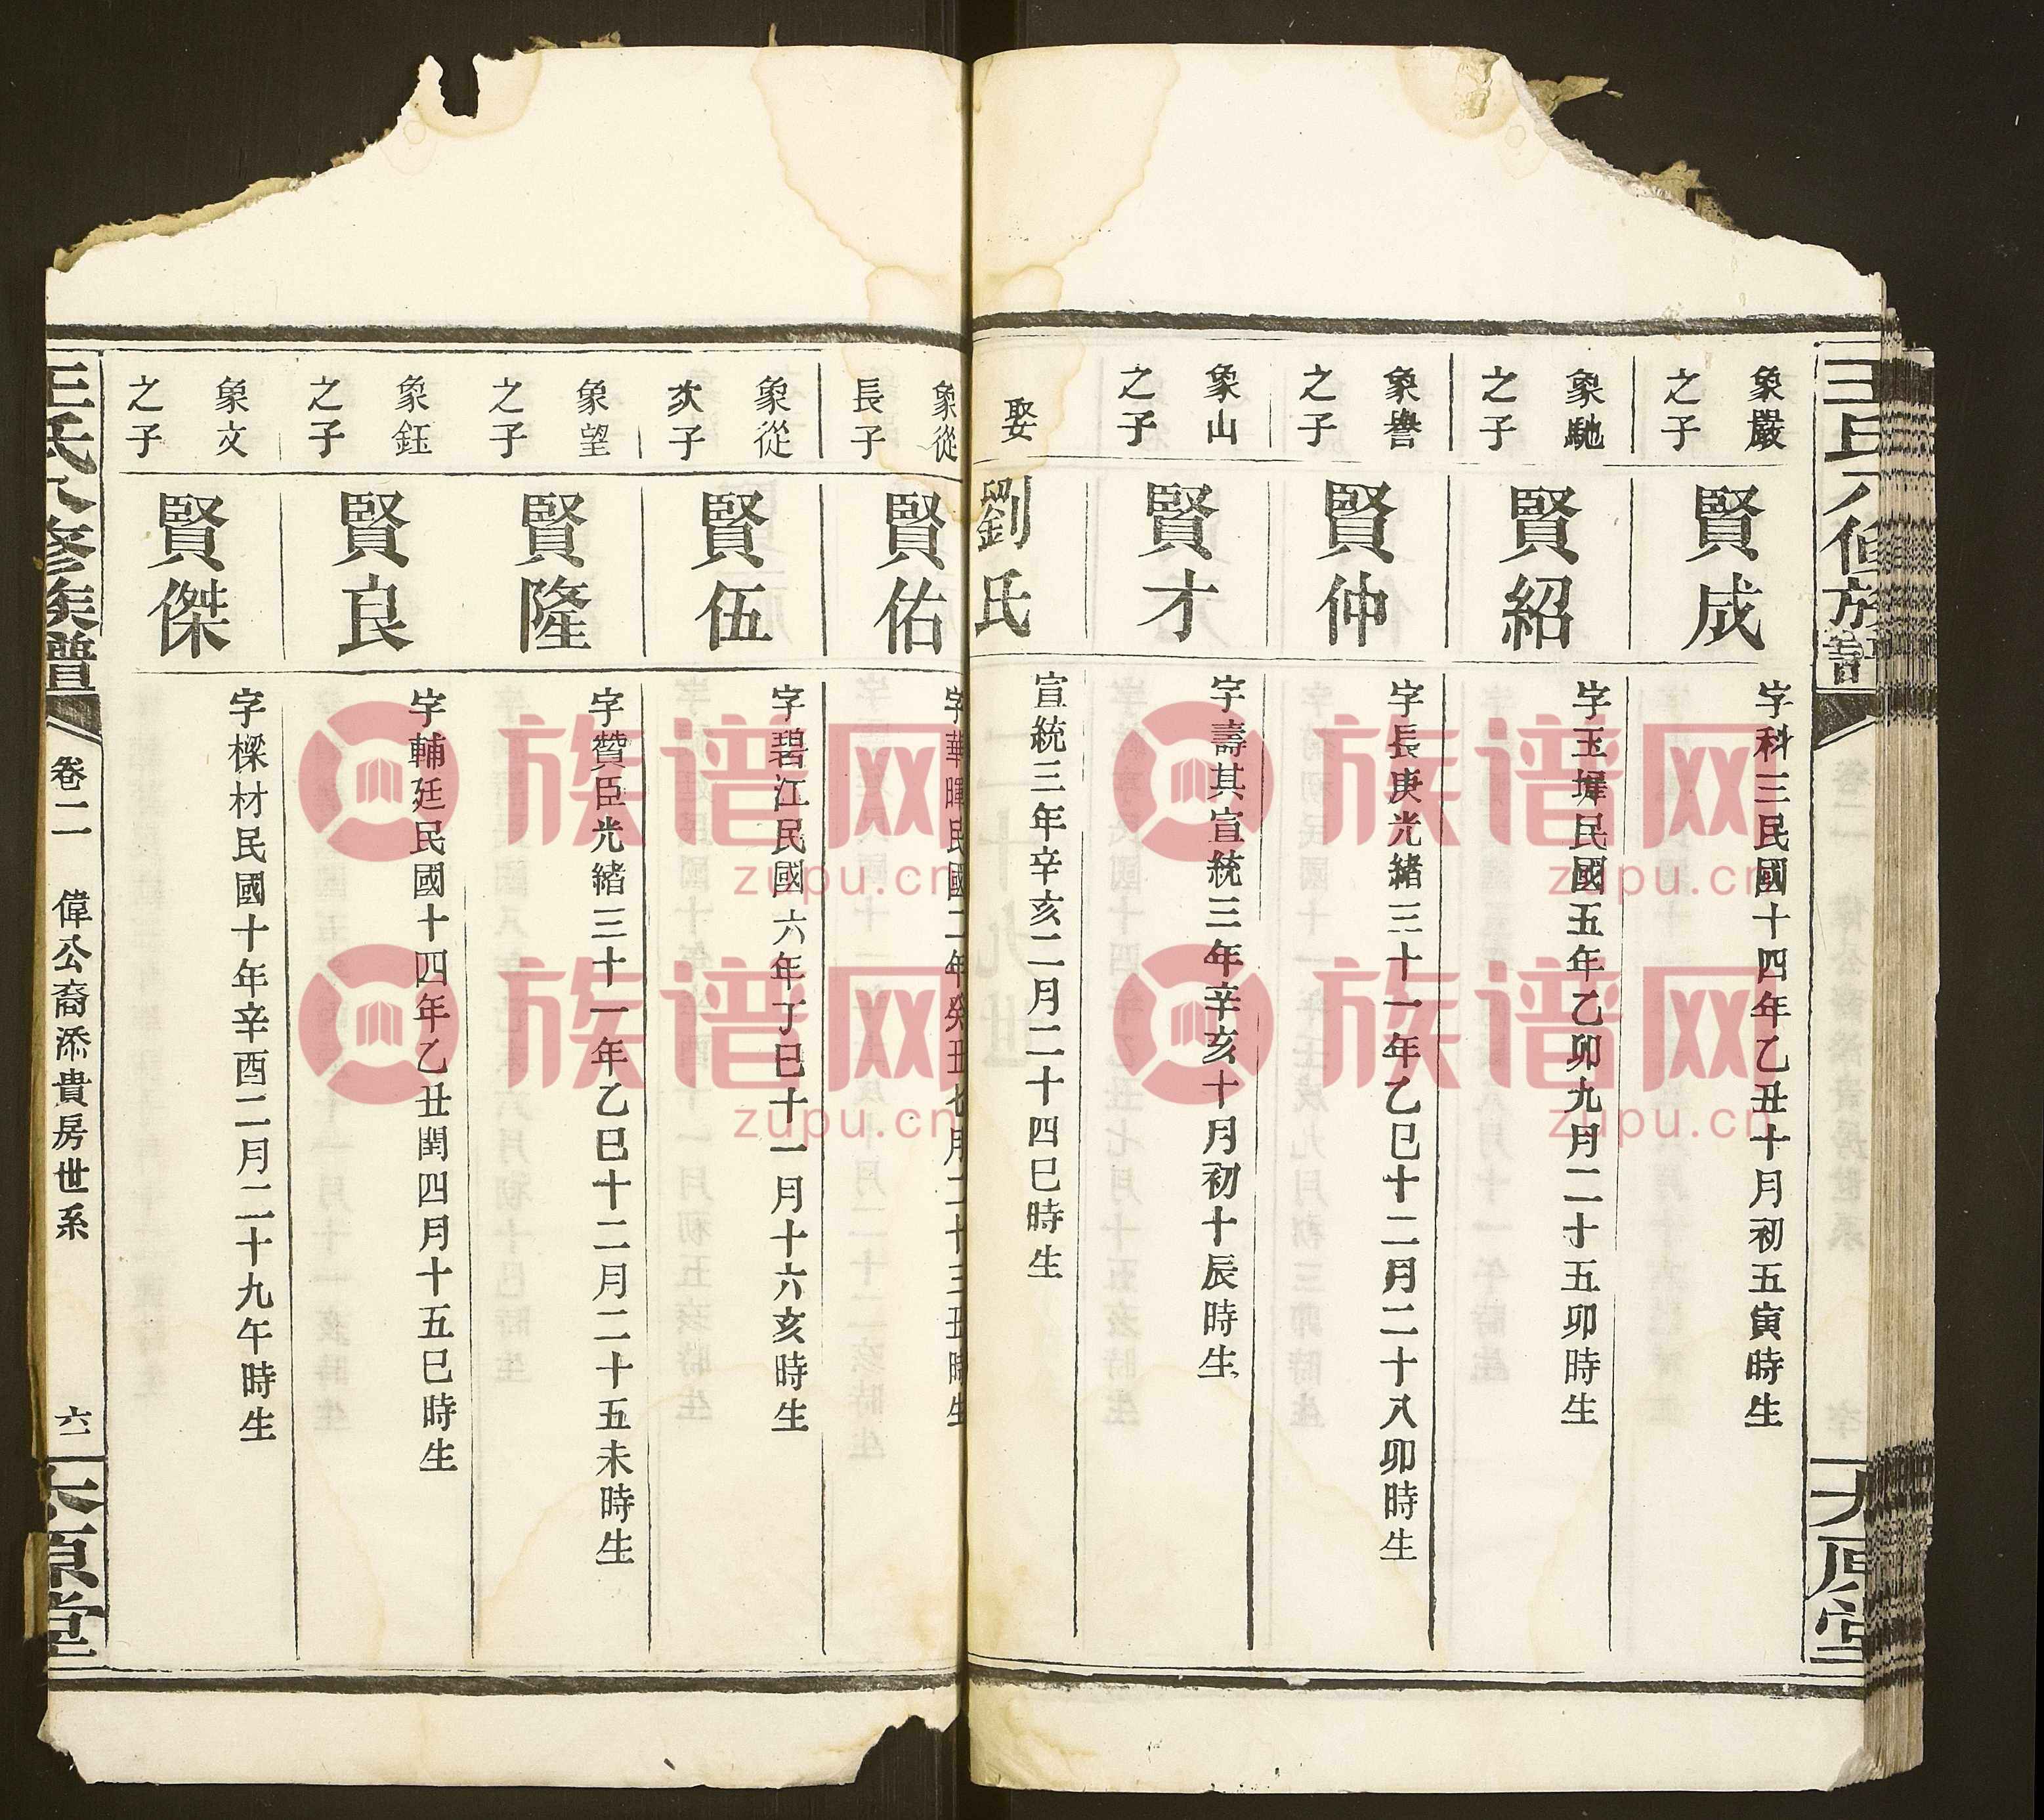 王氏八修族譜
太原堂
象嚴之子
賢成
字科三民國十四年乙丑十月初五寅時生
象馳之子
賢紹
字玉墀民國五年乙卯九月二十五卯時生
象譽之子
賢仲
字長庚光緒三十一年乙巳十二月二十八卯時生
象山之子
賢才
字壽其宣統三年辛亥十月初十辰時生
娶
劉氏
宣統三年辛亥二月二十四巳時生
象從長子
賢佑
字華暉民國二年癸丑七月二十三丑時生
象從次子
賢伍
字碧江民國六年丁巳十一月十六亥時生
象望之子
賢隆
字贊臣光緒三十一年乙巳十二月二十五未時生
象鈺之子
賢良
字輔廷民國十四年乙丑閏四月十五巳時生
象文之子
賢傑
字樑材民國十年辛酉二月二十九午時生
王氏八修族譜
卷二 偉公裔添貴房世系
六一
太原堂
族谱网 族谱网
zupu.cn zupu.cn
族谱网 族谱网
zupu.cn zupu.cn